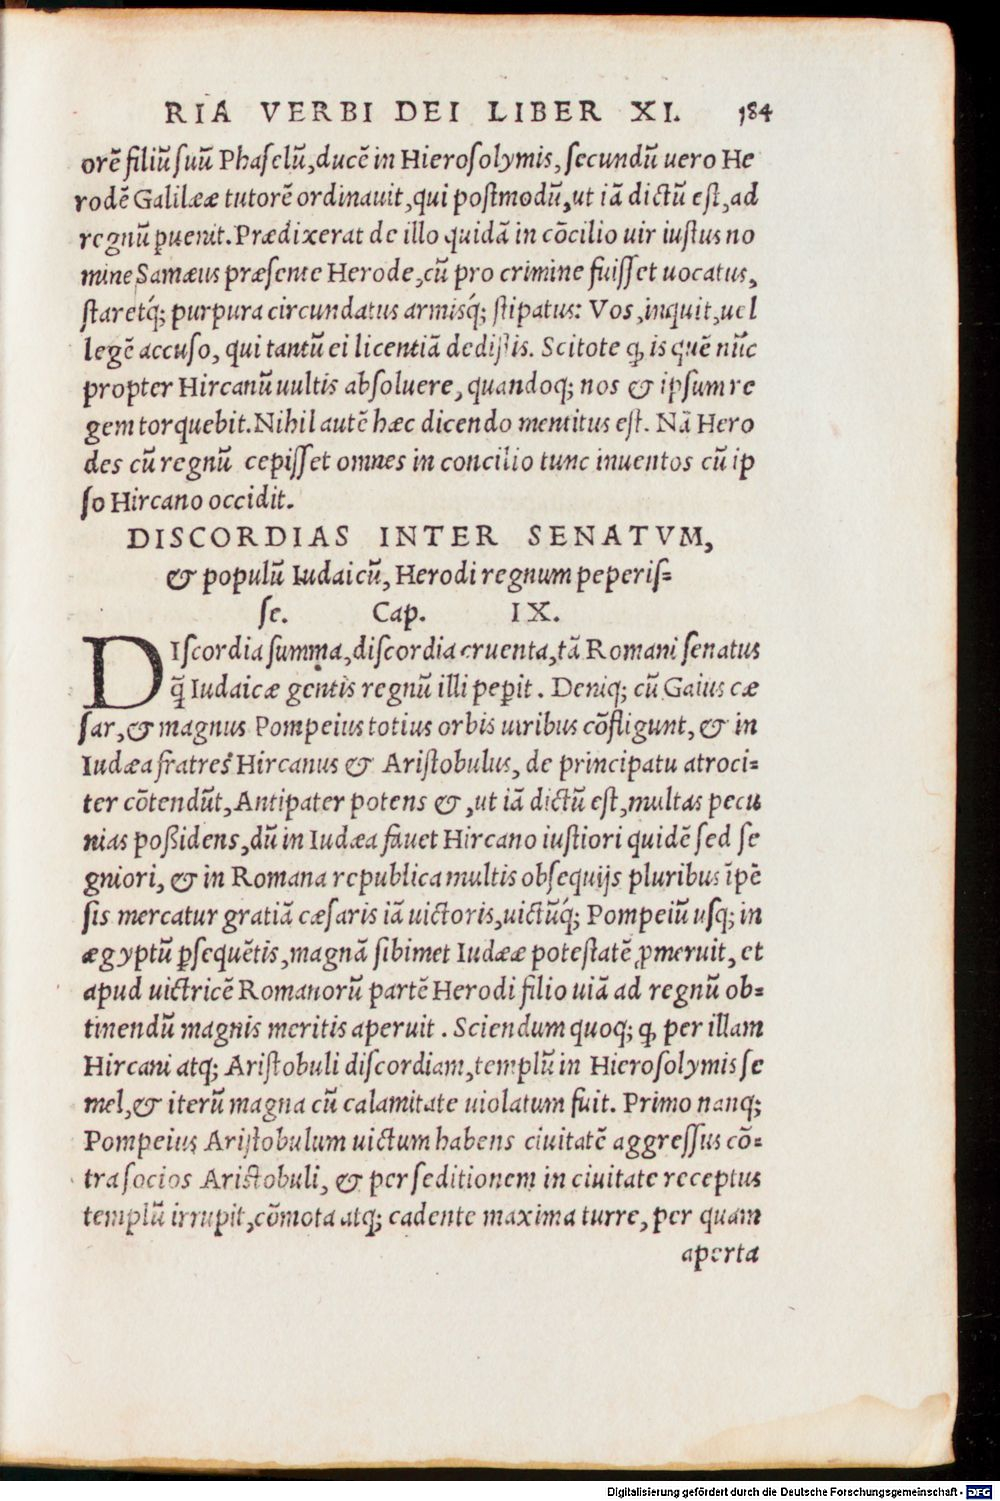 RIA VERBI DEI LIBER XI. 184
orē filiū ſuū Phaſelū, ducē in Hieroſolymis, ſecundū uero He
rodē Galilææ tutorē ordinauit, qui poſtmodū, ut iā dictū eſt, ad
regnū ꝑuenit. Prædixerat de illo quidā in cōcilio uir iuſtus no
mine Samæus præſente Herode, cū pro crimine fuiſſet uocatus,
ſtaretq́; purpura circundatus armisq́; ſtipatus: Vos, inquit, uel
legē accuſo, qui tantū ei licentiā dediſtis. Scitote ꝙ is quē nūc
propter Hircanū uultis abſoluere, quandoq; nos & ipſum re
gem torquebit. Nihil autē hæc dicendo mentitus eſt. Nā Hero
des cū regnū cepiſſet omnes in concilio tunc inuentos cū ip
ſo Hircano occidit.
DISCORDIAS INTER SENATVM,
& populū Iudaicū, Herodi regnum peperiſ=
ſe. Cap. IX.
DIſcordia ſumma, diſcordia cruenta, tā Romani ſenatus
q̄ Iudaicæ gentis regnū illi peꝑit. Deniq; cū Gaius cæ
ſar, & magnus Pompeius totius orbis uiribus cōfligunt, & in
Iudæa fratres Hircanus & Ariſtobulus, de principatu atroci=
ter cōtendūt, Antipater potens &, ut iā dictū eſt, multas pecu
nias poßidens, dū in Iudæa fauet Hircano iuſtiori quidē ſed ſe
gniori, & in Romana republica multis obſequijs pluribus īpē
ſis mercatur gratiā cæſaris iā uictoris, uictūq́; Pompeiū uſq; in
ægyptū ꝑſequētis, magnā ſibimet Iudææ poteſtatē ꝓmeruit, et
apud uictricē Romanorū partē Herodi filio uiā ad regnū ob=
tinendū magnis meritis aperuit. Sciendum quoq; ꝙ per illam
Hircani atq; Ariſtobuli diſcordiam, templū in Hieroſolymis ſe
mel, & iterū magna cū calamitate uiolatum fuit. Primo nanq;
Pompeius Ariſtobulum uictum habens ciuitatē aggreſſus cō=
tra ſocios Ariſtobuli, & per ſeditionem in ciuitate receptus
templū irrupit, cōmota atq; cadente maxima turre, per quam
aperta
Digitalisierung gefördert durch die Deutsche Forschungsgemeinschaft - DFG